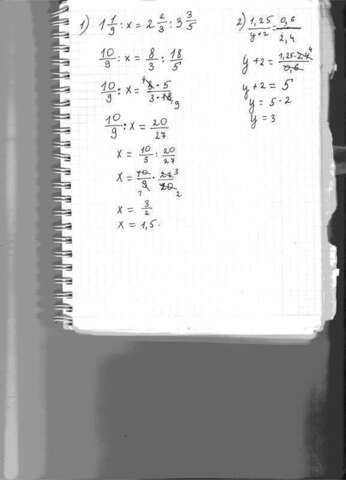 1) 1 1/9 : x = 2 2/3 : 3 3/5
10/9 : x = 8/3 : 18/5
10/9 : x = 4 8 · 5 / 3 · 18 9
10/9 : x = 20/27
x = 10/9 : 20/27
x = 10/9 1 · 27 3/20 2
x = 3/2
x = 1,5.
2) 1,25/y+2 = 0,6/2,4
y+2 = 1,25·2,4 4/0,6
y+2 = 5
y = 5-2
y = 3